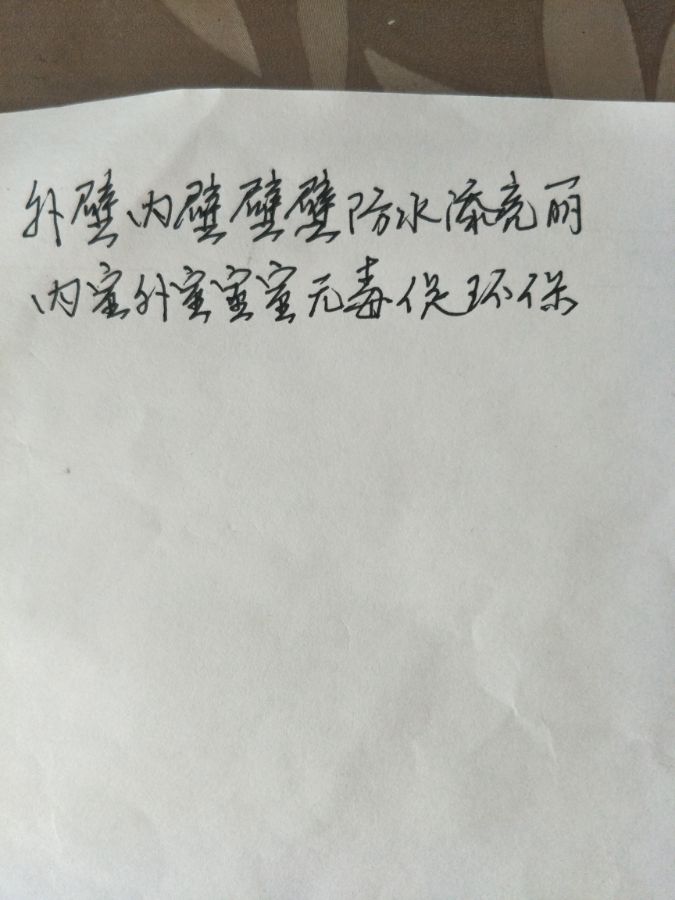 外壁内壁壁壁防水添亮丽
内室外室室室无毒促环保